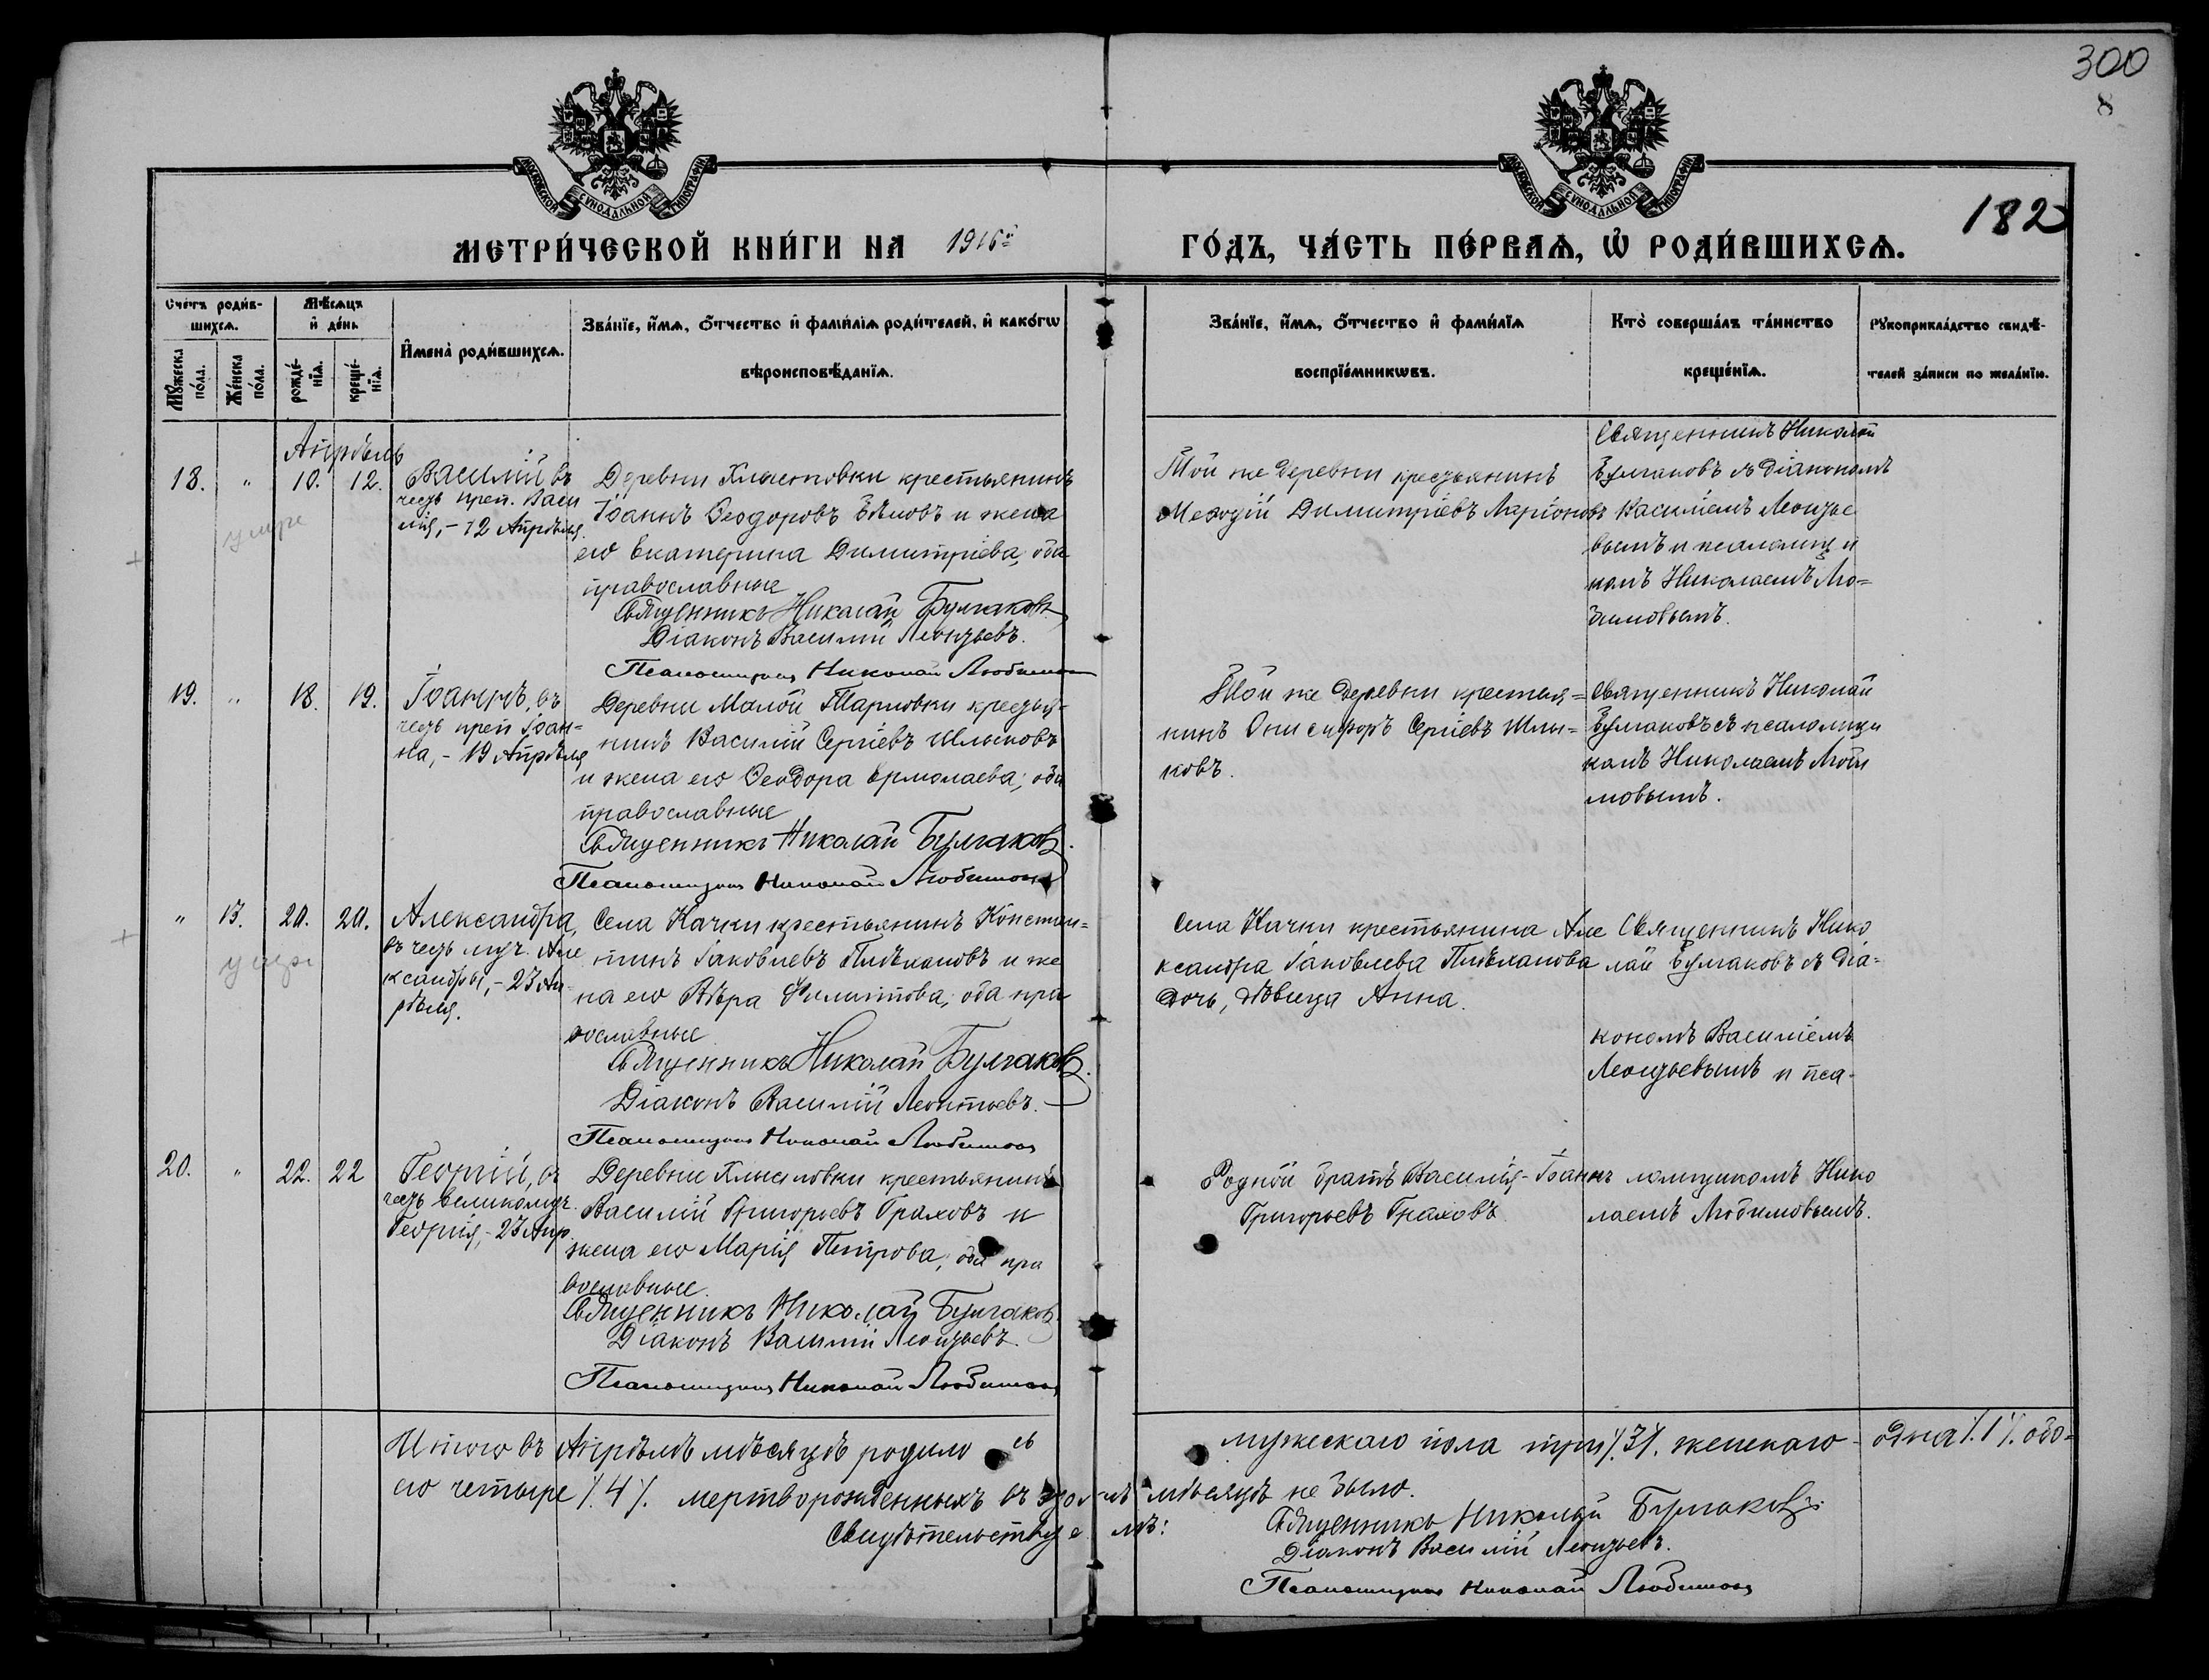 300
8
МОСКОВСКОЙ СѴНОДАЛЬНОЙ ТИПОГРАФІИ
МОСКОВСКОЙ СѴНОДАЛЬНОЙ ТИПОГРАФІИ
182
МЕТРИ́ЧЕСКОЙ КНИ́ГИ НА 1916й ГО́ДЪ, ЧА́СТЬ ПЕ́РВАѦ, Ѡ҆ РОДИ́ВШИХСѦ.
Сче́тъ роди́в-
шихсѧ.
Мꙋ́жеска по́ла.
Же́нска по́ла.
Мѣ́сѧцъ
и҆ де́нь
рожде́-
нїѧ.
креще́-
нїѧ.
И҆мена̀ роди́вшихсѧ.
Зва́нїе, и҆́мѧ, ѻ҆́тчество и҆ фами́лїѧ роди́телей, и҆ како́гѡ
вѣроисповѣ́данїѧ.
Зва́нїе, и҆́мѧ, ѻ҆́тчество и҆ фами́лїѧ
воспрїе́мникѡвъ.
Кто̀ соверша́лъ та́инство
креще́нїѧ.
Рꙋкоприкла́дство свидѣ́-
телей за́писи по жела́нїю.
Апрѣль
18. " 10. 12.
умре
Василій въ
честь преп. Васи
лія, - 12 Апрѣля.
Деревни Хлыстовки крестьянинъ
Іоаннъ Ѳеодоровъ Бѣловъ и жена
его Екатерина Димитріева, оба
православные
Священникъ Николай Булгаковъ
Діаконъ Василій Леонтьевъ.
Псаломщикъ Николай Любимовъ
Той же деревни крестьянинъ
Меѳодій Димитріевъ Ларіоновъ
Священникъ Николай
Булгаковъ съ діакономъ
Василіемъ Леонтье
вымъ и псаломщи
комъ Николаемъ Лю=
бимовымъ.
19. " 18. 19.
Іоаннъ, въ
честь преп Іоан=
на, - 19 Апрѣля
Деревни Малой Тарловки крестья-
нинъ Василій Сергіевъ Шлыковъ
и жена его Ѳеодора Ермолаева; оба
православные
Священникъ Николай Булгаковъ.
Псаломщикъ Николай Любимовъ
Той же деревни крестья=
нинъ Онисифоръ Сергіевъ Шлы=
ковъ.
Священникъ Николай
Булгаковъ съ псаломщи
комъ Николаемъ Люби
мовымъ.
" 13. 20. 20.
умре
Александра,
въ честь муч. Але
ксандры, - 23 Ап-
рѣля.
Села Качки крестьянинъ Констан=
тинъ Іаковлевъ Плѣхановъ и же
на его Вѣра Филиппова, оба пра
вославные
Священникъ Николай Булгаковъ.
Діаконъ Василій Леонтьевъ.
Псаломщикъ Николай Любимовъ
Села Качки крестьянина Але
ксандра Іаковлева Плѣханова
дочь, дѣвица Анна.
Священникъ Нико
лай Булгаковъ съ діа-
кономъ Василіемъ
Леонтьевымъ и пса-
20. " 22. 22
Георгій, въ
честь великомуч.
Георгія, - 23 Апр.
Деревни Хлыстовки крестьянинъ
Василій Григорьевъ Граховъ и
жена его Марія Петрова; оба пра
вославные.
Священникъ Николай Булгаковъ
Діаконъ Василій Леонтьевъ.
Псаломщикъ Николай Любимовъ
Родной братъ Василія - Іоаннъ
Григорьевъ Граховъ
ломщикомъ Нико
лаемъ Любимовымъ.
Итого въ Апрѣлѣ мѣсяцѣ родилось мужескаго пола три /.3/. женскаго - одна /.1/. обо=
его четыре /.4/. мертворожденныхъ въ этомъ мѣсяцѣ не было.
Свидѣтельствуемъ:
Священникъ Николай Булгаковъ
Діаконъ Василій Леонтьевъ.
Псаломщикъ Николай Любимовъ